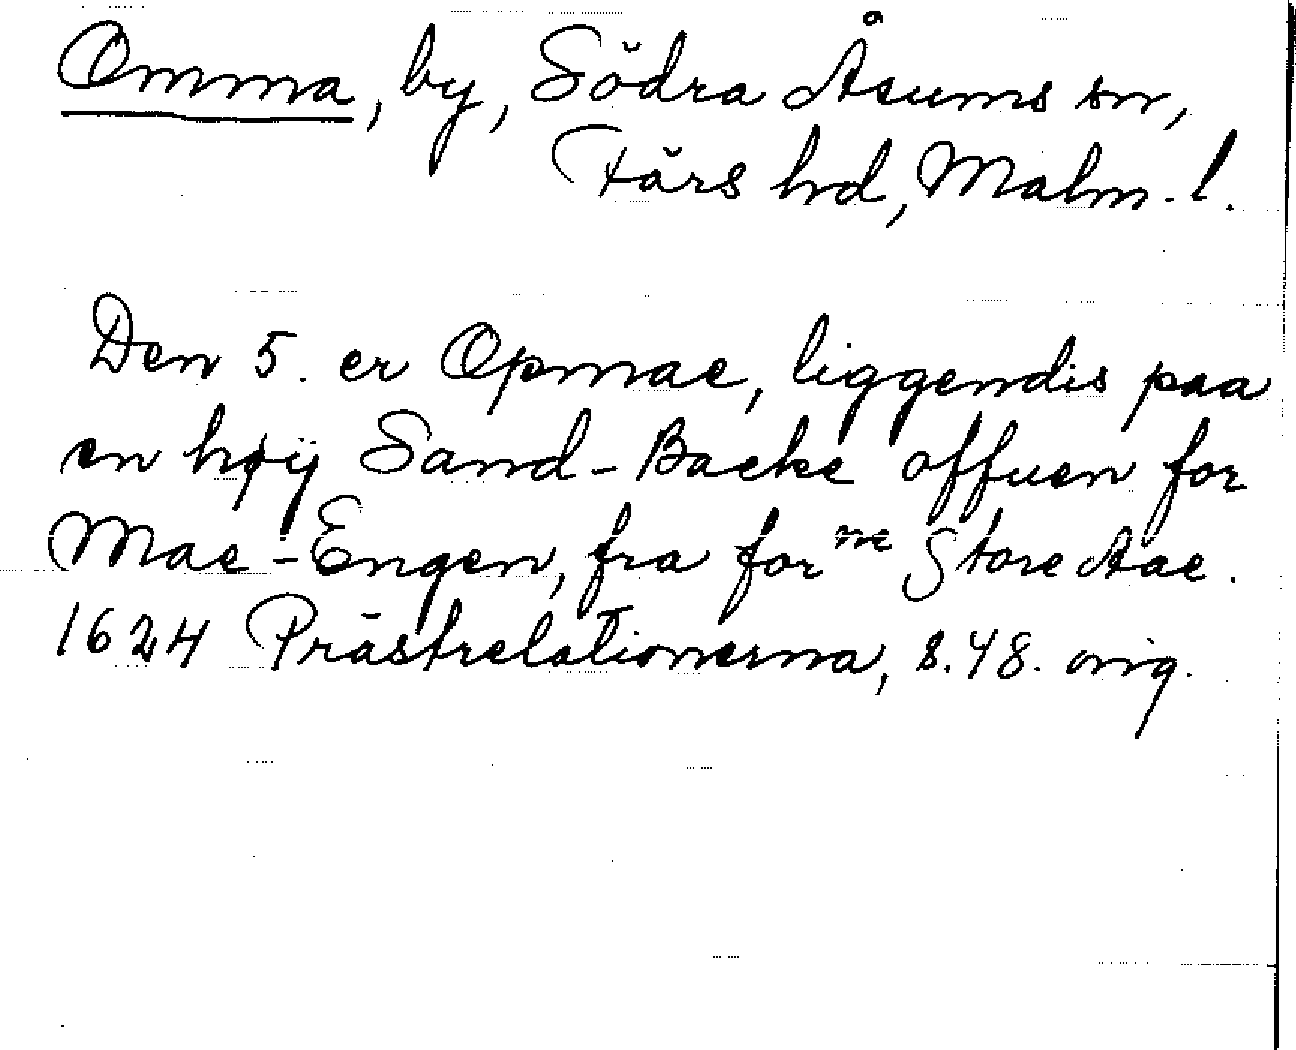 Omma, by, Södra Åsums sn,
Färs hd, Malm. l.
Den 5. er Opmae, liggendis paa
en høÿ Sand-Backe offuen for
Mae-Engen, fra for me Store Aae.
1624 Prästrelationerna, s. 48. orig.